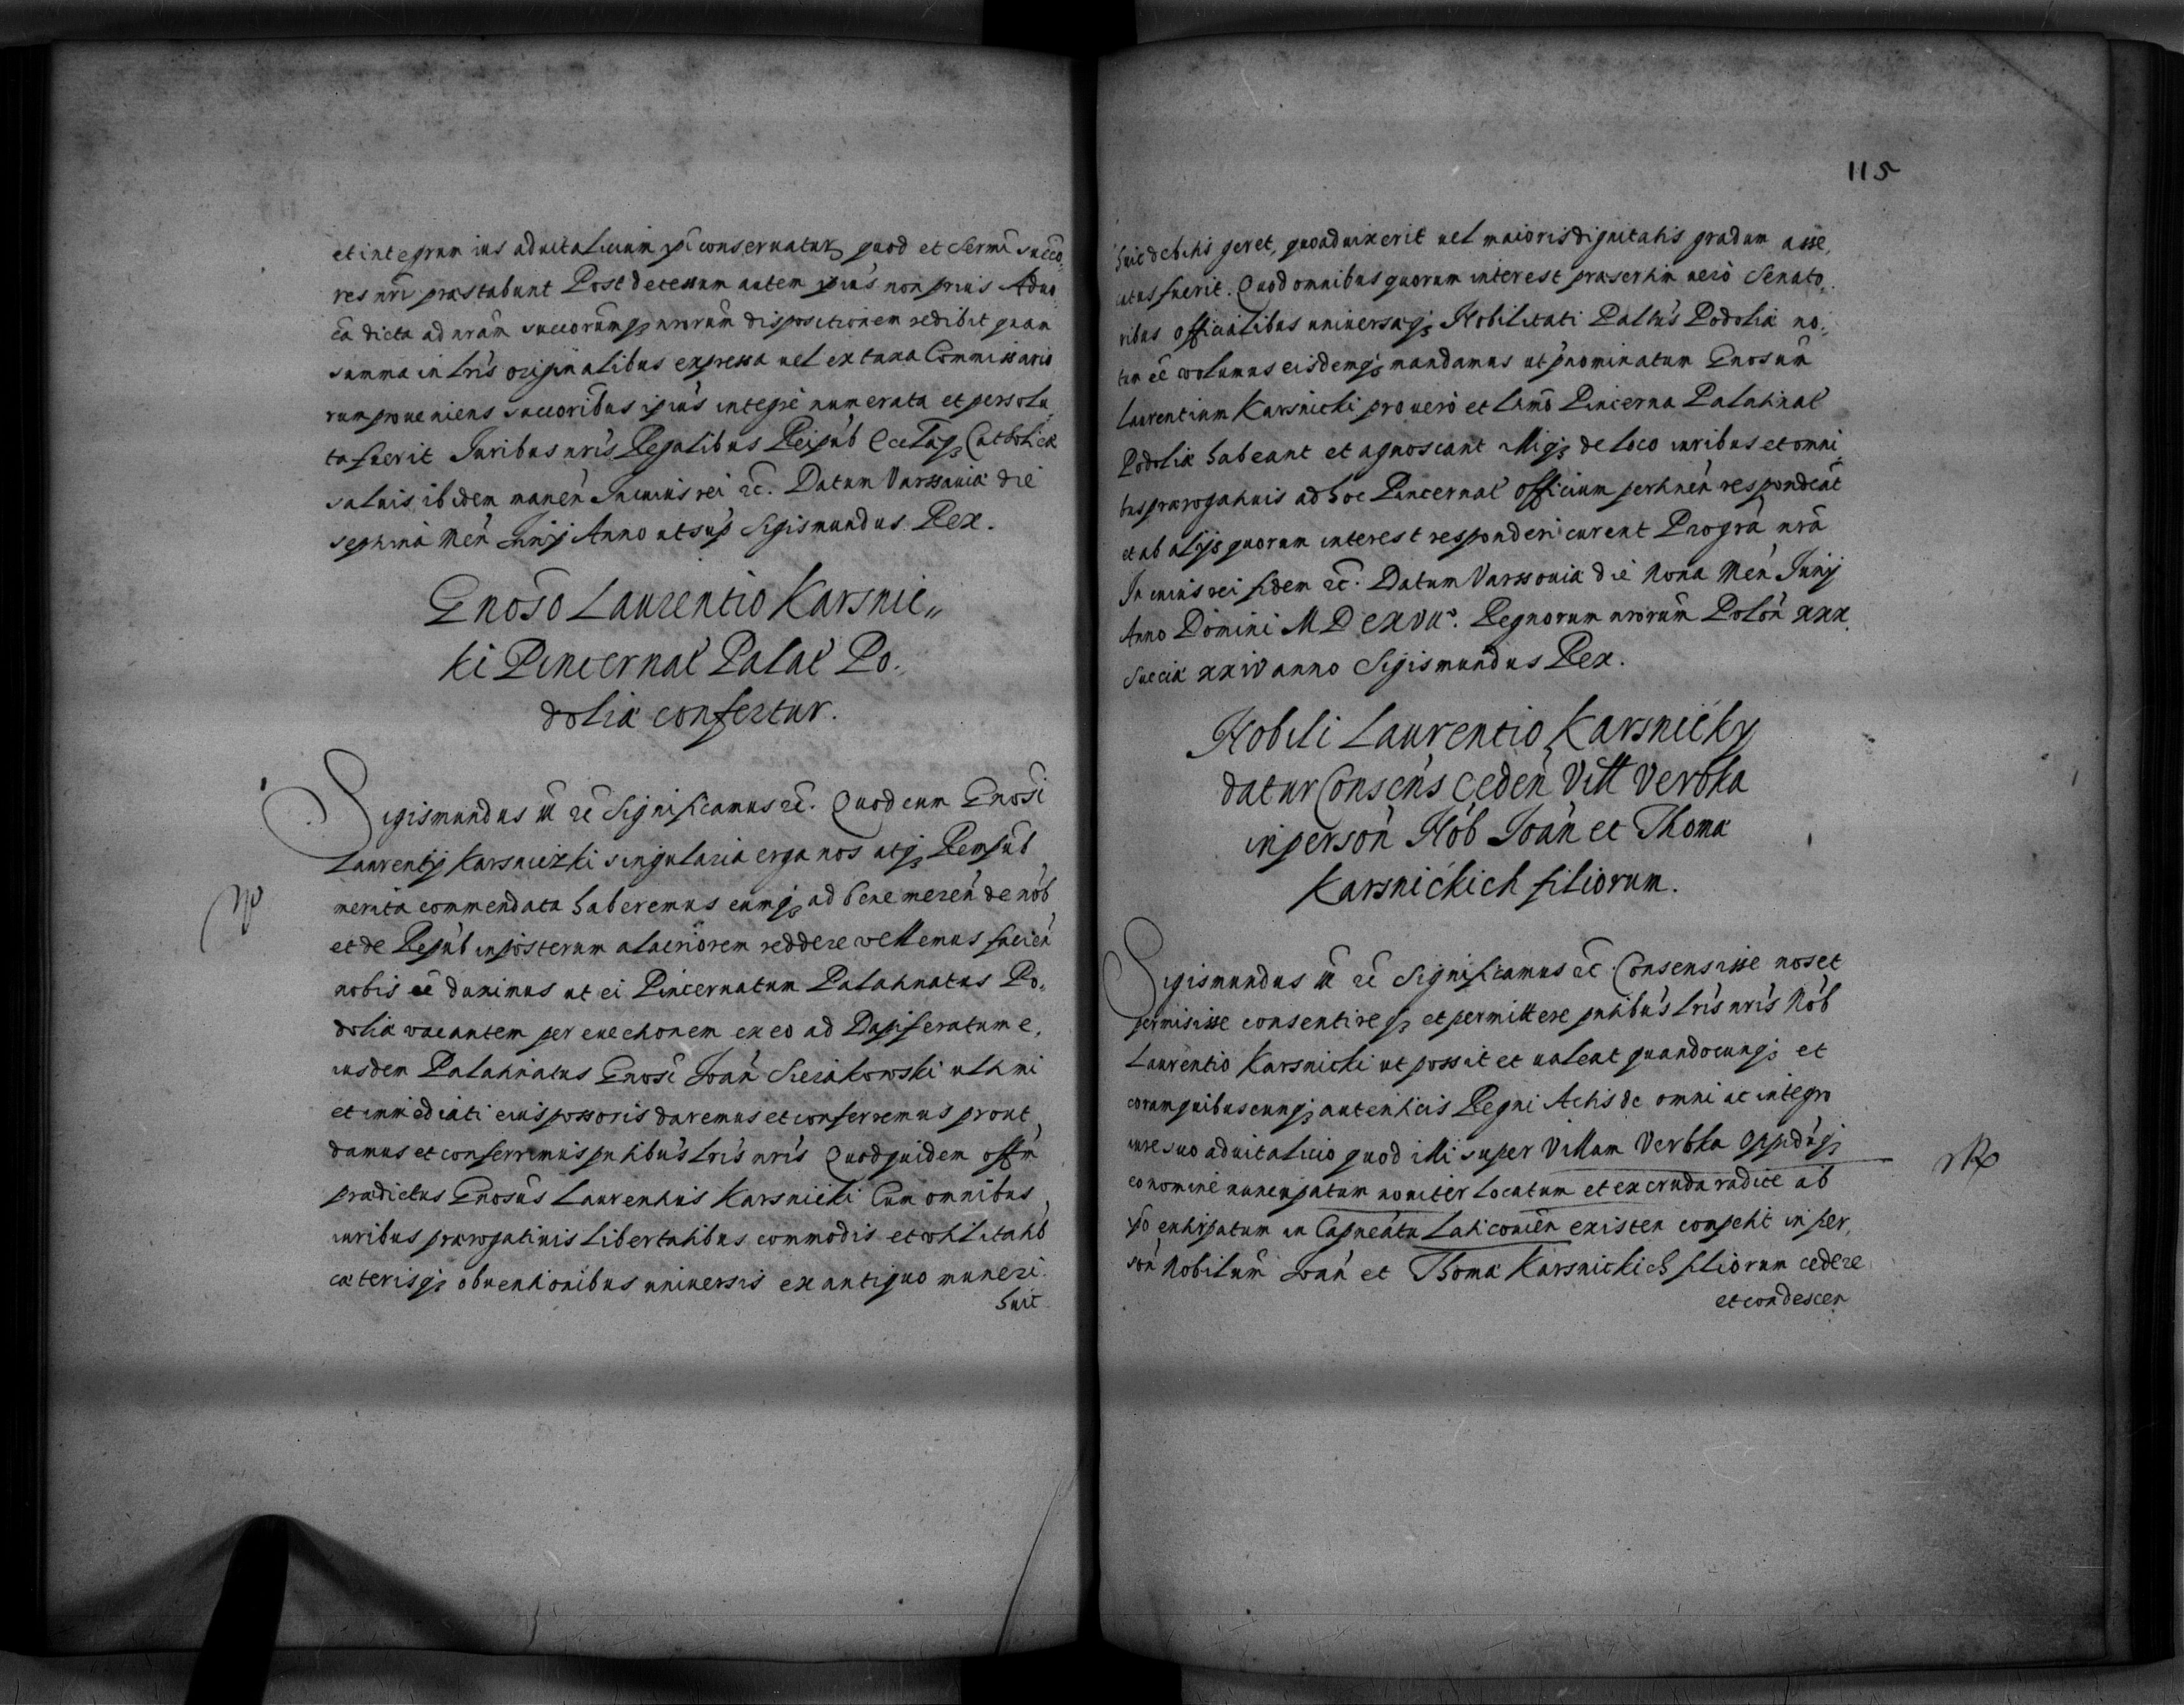 et integrum ius aduitalicium ipi conseruatur quod et Sermi succo,
res nri præstabunt Post decessum autem ipius non prius Aduo
ĉa dicta ad nram succorumq nrorum dispositionem redibit quam
summa in lris originalibus expressa uel ex taxa Commissario
rum proueniens succoribus ipius integre numerata et persolu,
ta fuerit Juribus nris Regalibus Reipub Ecclæq Catholicæ
saluis ibidem manen In cuius rei etc. Datum Varssauiæ die
septima Men Junij Anno ut sup Sigismundus Rex.
Gnoso Laurentio Karsnic„
ki Pincernat Palat Po.
doliæ confertur.
Sigismundus III etc Significamus etc. Quod cum Gnosi
Laurentij Karsniczki singularia erga nos atq Rempub
merita commendata haberemus eumq ad bene meren de nob
et de Repub in posterum alacriorem reddere vellemus facien
nobis ee duximus ut ei Pincernatum Palatinatus Po,
doliæ vacantem per euectionem ex eo ad Dapiferatum e,
iusdem Palatinatus Gnosi Joan Sierakowski ultimi
et immediati eius possoris daremus et conferremus prout
damus et conferrimus pntibus lris nris Quodquidem offm
prædictus Gnosus Laurentius Karsnicki Cum omnibus
iuribus prærogatiuis libertatibus commodis et vtilitatib
cæterisq obuentionibus uniuersis ex antiquo muneri
huic
115
huic debitis geret, quoad uixerit uel maioris dignitatis gradum asse,
cutus fuerit. Quod omnibus quorum interest præsertim uero Senato,
ribus officialibus uniuersæq Nobilitati Paltus Podoliæ no,
tum ee volumus eisdemq mandamus ut pnominatum Gnosum
Laurentium Karsnicki pro uero et ltimo Pincerna Palatinat
Podoliæ habeant et agnoscant illiq de loco iuribus et omni,
bus prærogatiuis ad hoc Pincernat officium pertinen respondeat
et ab alijs quorum interest responderi curent Pro gra nra
In cuius rei fidem etc. Datum Varssouiæ die Nona Men Junij
Anno Domini MDCXVII°. Regnorum nrorum Polon XXX.
Sueciæ XXIV anno Sigismundus Rex.
Nobili Laurentio Karsnicky
datur Consens ceden Vill Verbka
in person Nob Joan et Thomæ
Karsnickich filiorum.
Sigismundus III etc Significamus etc Consensisse nos et
permisisse consentireq et permittere pntibus lris nris Nob
Laurentio Karsnicki ut possit et ualeat quandocunq et
coram quibuscunq autenticis Regni Actis de omni ac integro
iure suo aduitalicio quod illi super Villam Verbka oppidumq
eo nomine nuncupatum nouiter locatum et ex cruda radice ab
ipo extirpatum in Capneatu Laticouien existen competit in per,
son Nobilium Joan et Thomæ Karsnickich filiorum cedere
et condescen